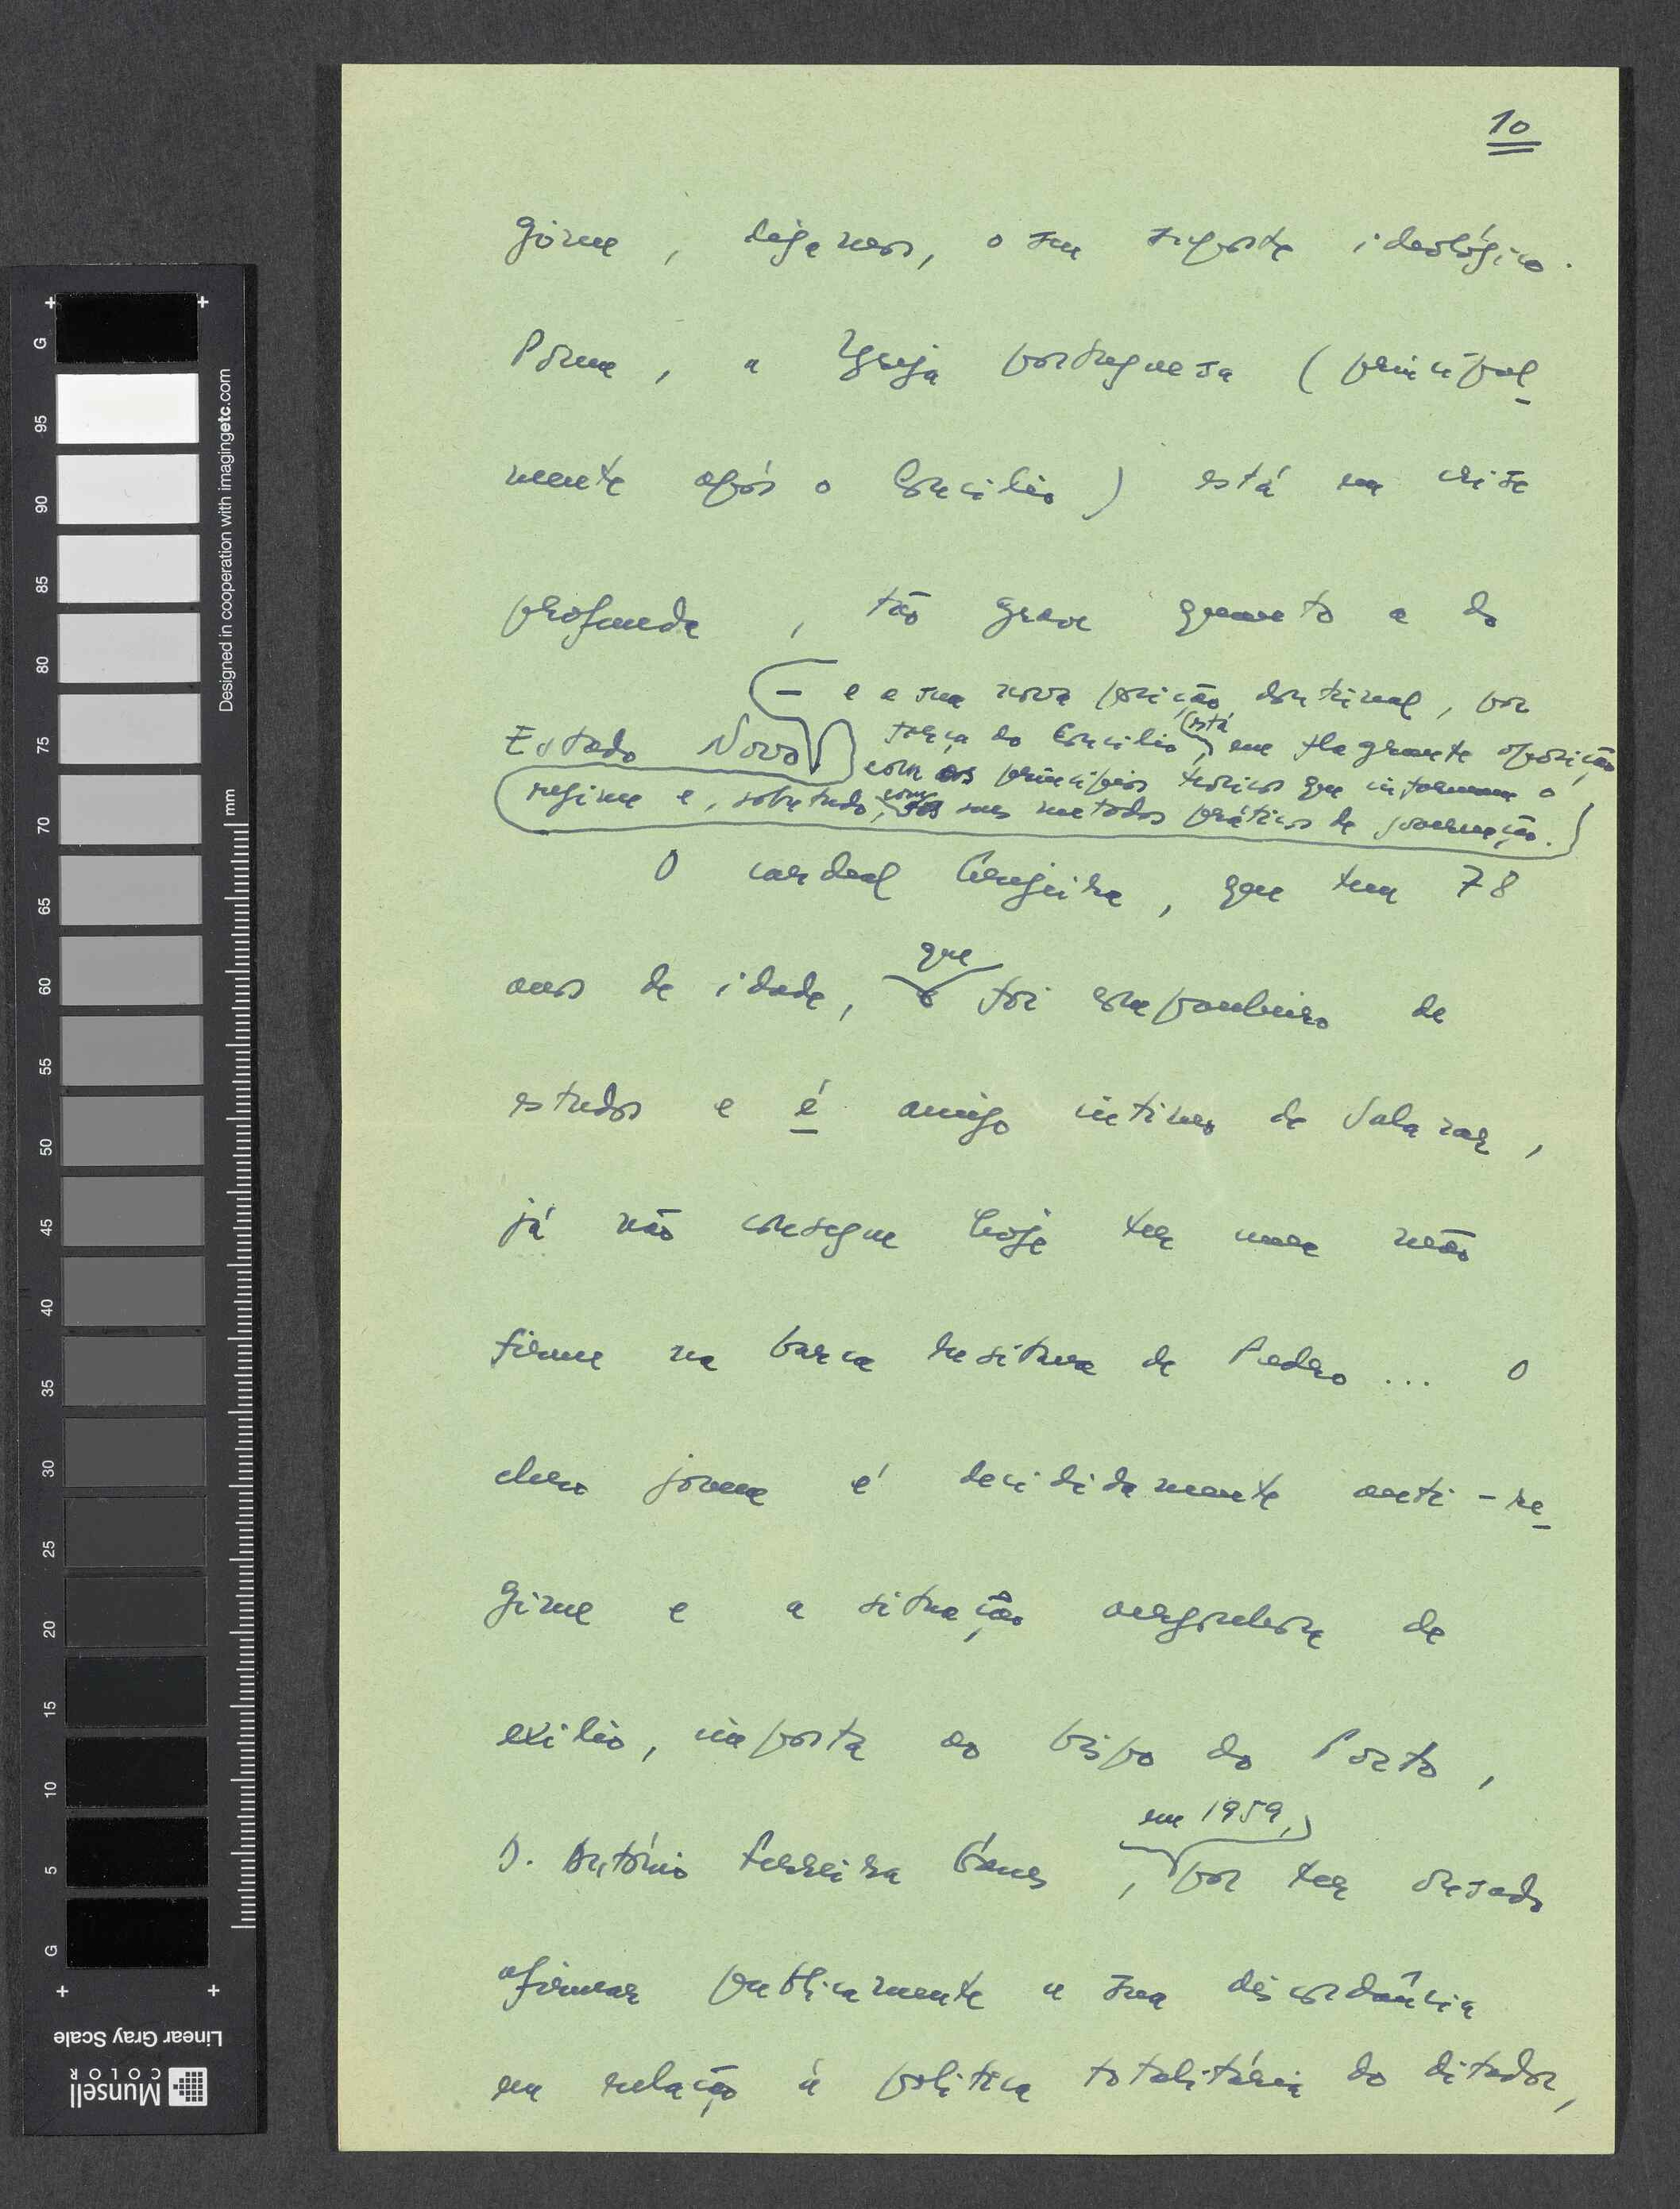 10
gime, digamos, o seu suporte ideológico.
Porém, a Igreja portuguesa (principal
mente após o Concílio) está em crise
profunda, tão grave quanto a do
Estado Novo
– e a sua nova posição doutrinal, por
força do Concilio, está em flagrante oposição
com os princípios teóricos que informam o
regime e, sobretudo, com os seus metodos práticos de governação.
O cardeal Cerejeira, que tem 78
anos de idade, que foi companheiro de
estudos e é amigo intimo de Salazar,
já não consegue hoje ter uma mão
firme na barca de Pedro... O
clero jovem é decididamente anti-re
gime e a situação de
exilio, imposta ao bispo do Porto,
D. António Ferreira Gomes, em 1959, por ter ousado
afirmar publicamente a sua discordância
em relação à politica totalitária do ditador,
G
95
90
85
80
75
70
65
60
55
50
45
40
35
30
25
20
15
10
5
G
mm
Designed in cooperation with imagingetc.com
Linear Gray Scale
Munsell
COLOR